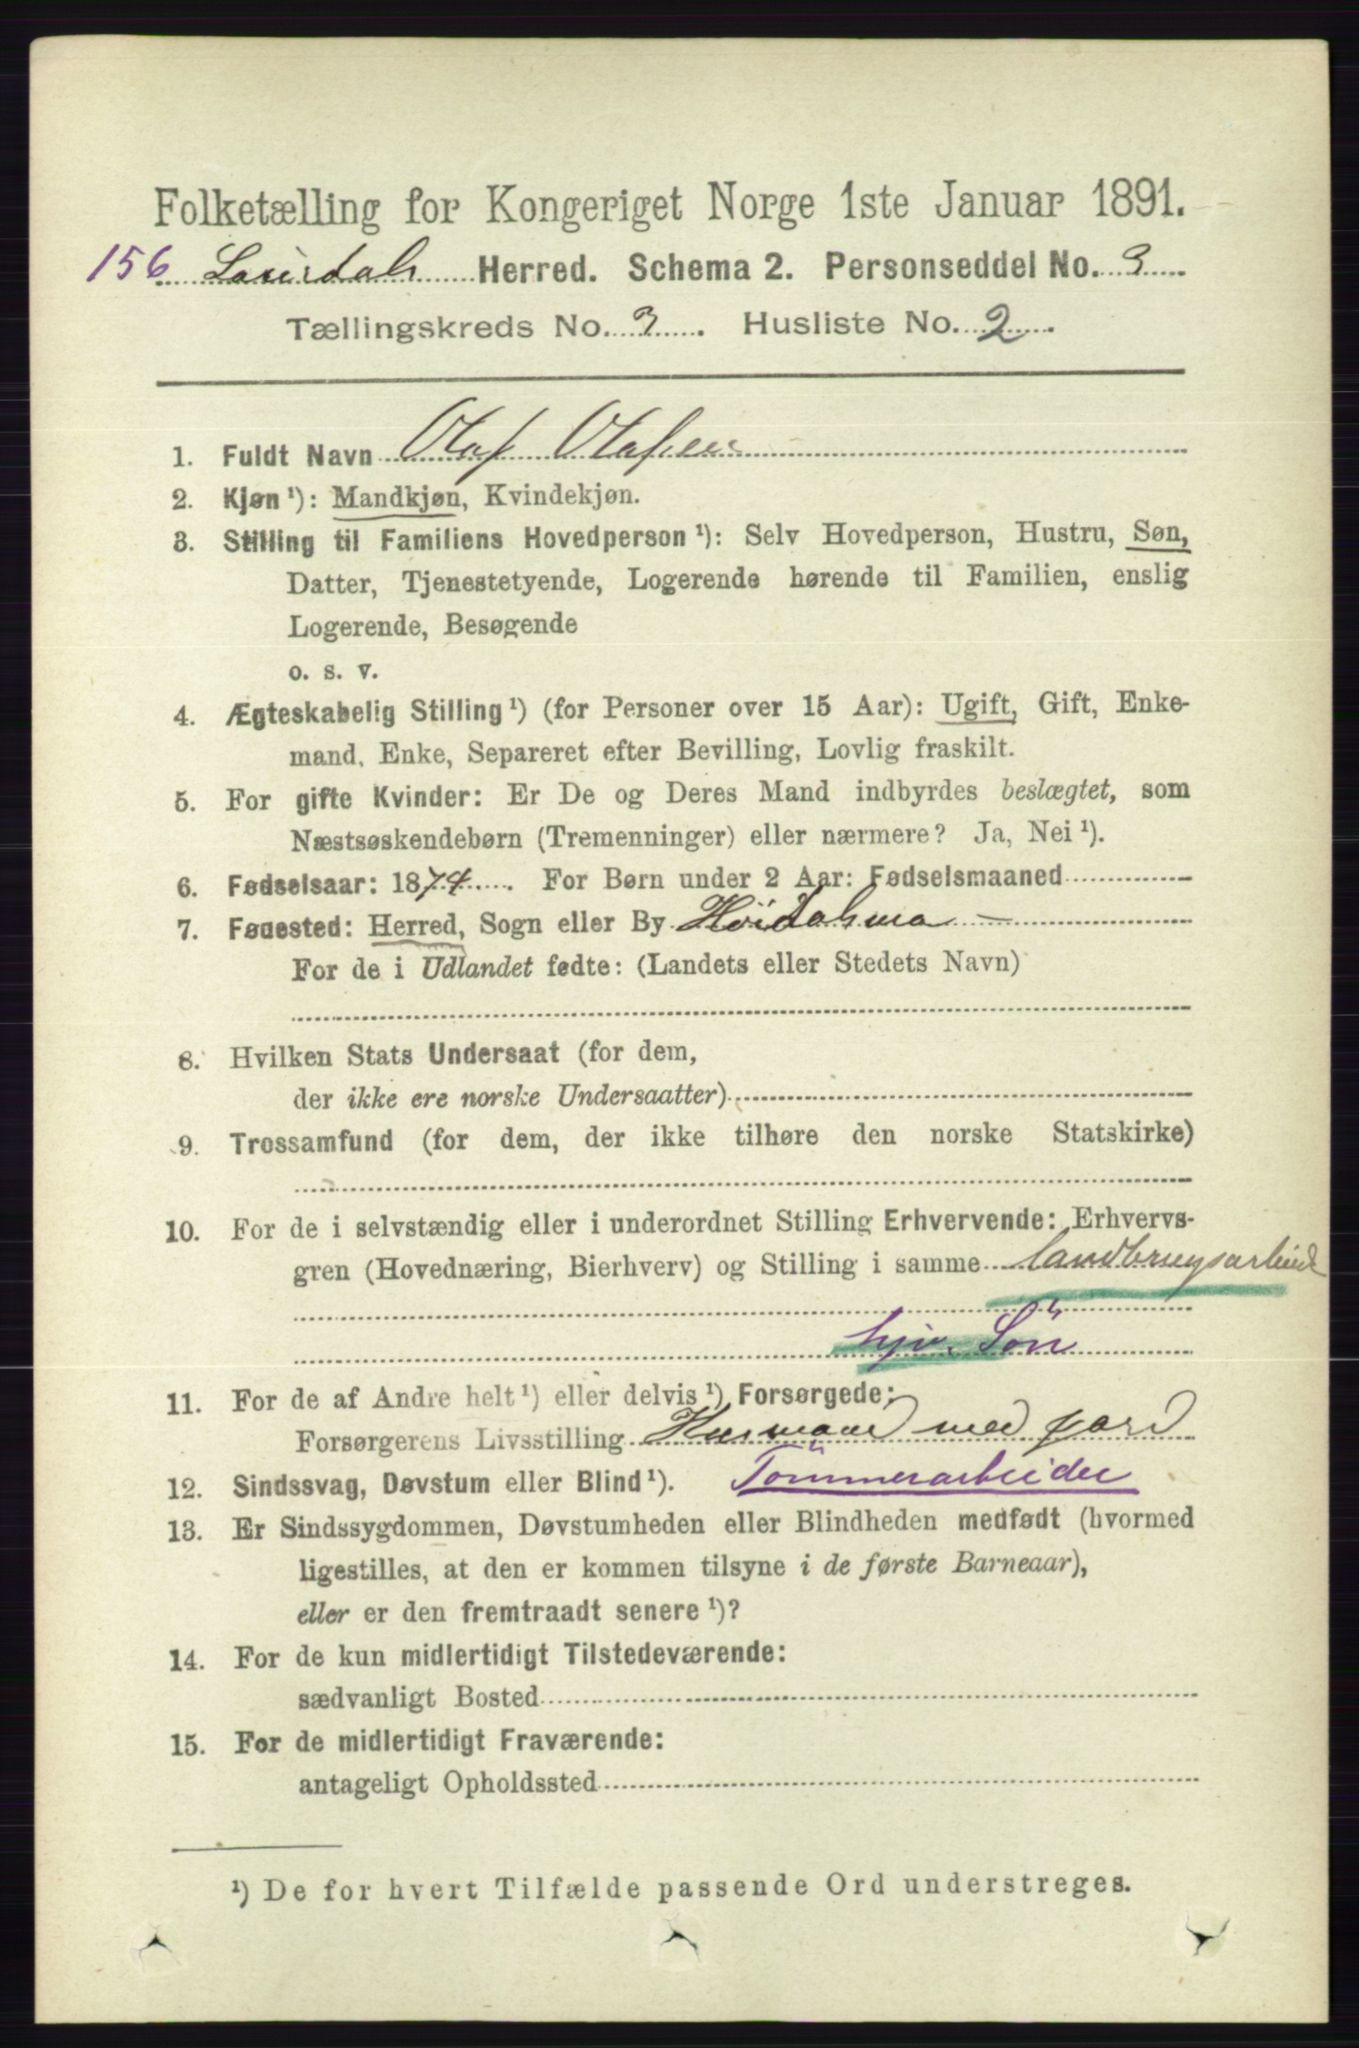 Folketælling for Kongeriget Norge 1ste Januar 1891.
156 Laurdals Herred. Schema 2. Personseddel No. 3
Tællingskreds No. 3. Husliste No. 2.
1. Fuldt Navn Olaf Olafsen
2. Kjøn¹): Mandkjøn, Kvindekjøn.
3. Stilling til Familiens Hovedperson¹): Selv Hovedperson, Hustru, Søn,
Datter, Tjenestetyende, Logerende hørende til Familien, enslig
Logerende, Besøgende
o. s. v.
4. Ægteskabelig Stilling¹) (for Personer over 15 Aar): Ugift, Gift, Enke-
mand, Enke, Separeret efter Bevilling, Lovlig fraskilt.
5. For gifte Kvinder: Er De og Deres Mand indbyrdes beslægtet, som
Næstsøskendebørn (Tremenninger) eller nærmere? Ja, Nei¹).
6. Fødselsaar: 1874. For Børn under 2 Aar: Fødselsmaaned
7. Fødested: Herred, Sogn eller By Høidalsmo
For de i Udlandet fødte: (Landets eller Stedets Navn)
8. Hvilken Stats Undersaat (for dem,
der ikke ere norske Undersaatter)
9. Trossamfund (for dem, der ikke tilhøre den norske Statskirke)
10. For de i selvstændig eller i underordnet Stilling Erhvervende: Erhvervs-
gren (Hovednæring, Bierhverv) og Stilling i samme landbrugsarbeid
hjv. Sön
11. For de af Andre helt¹) eller delvis¹) Forsørgede:
Forsørgerens Livsstilling Husmand med jord
12. Sindssvag, Døvstum eller Blind¹). Tömmerarbeider
13. Er Sindssygdommen, Døvstumheden eller Blindheden medfødt (hvormed
ligestilles, at den er kommen tilsyne i de første Barneaar),
eller er den fremtraadt senere¹)?
14. For de kun midlertidigt Tilstedeværende:
sædvanligt Bosted
15. For de midlertidigt Fraværende:
antageligt Opholdssted
¹) De for hvert Tilfælde passende Ord understreges.